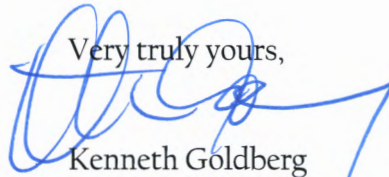 Very truly yours,
Kenneth Goldberg